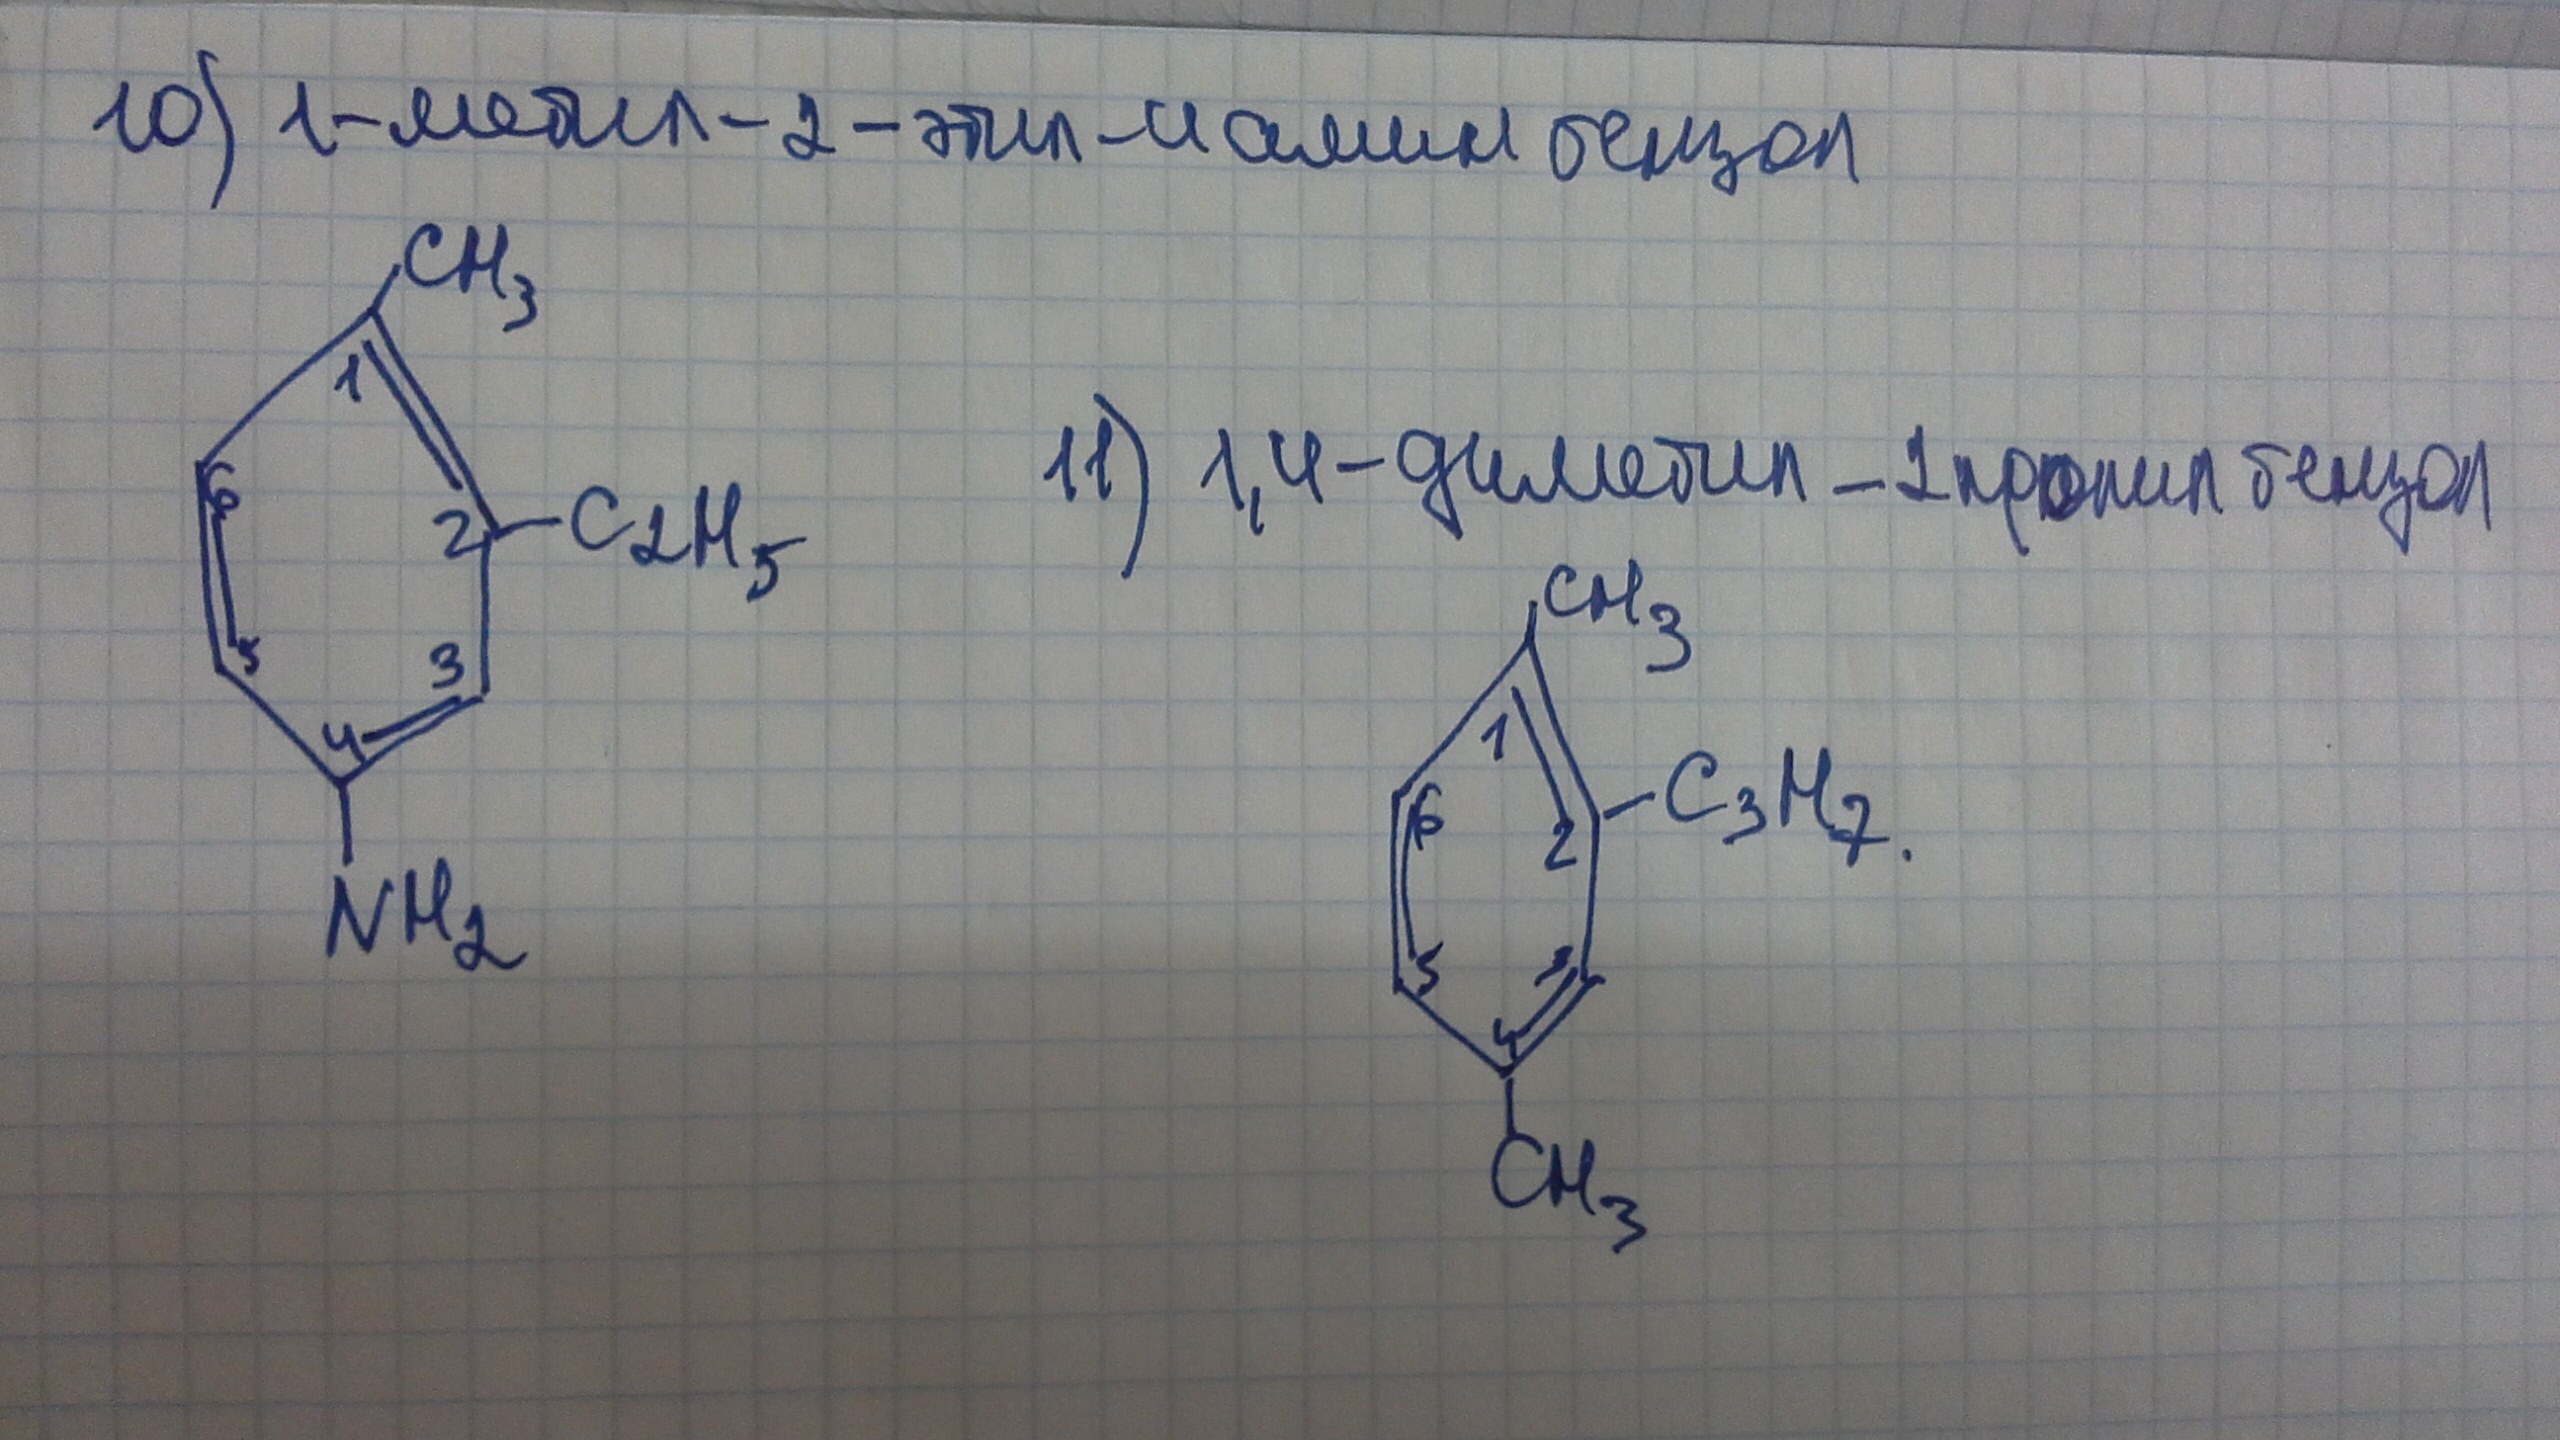 10) 1-метил-2-этил-4 амин бензол
CH3
1
6
2 -C2H5
5
3
4
NH2
11) 1,4-диметил-2пропил бензол
CH3
1
6
2 -C3H7.
5
3
4
CH3